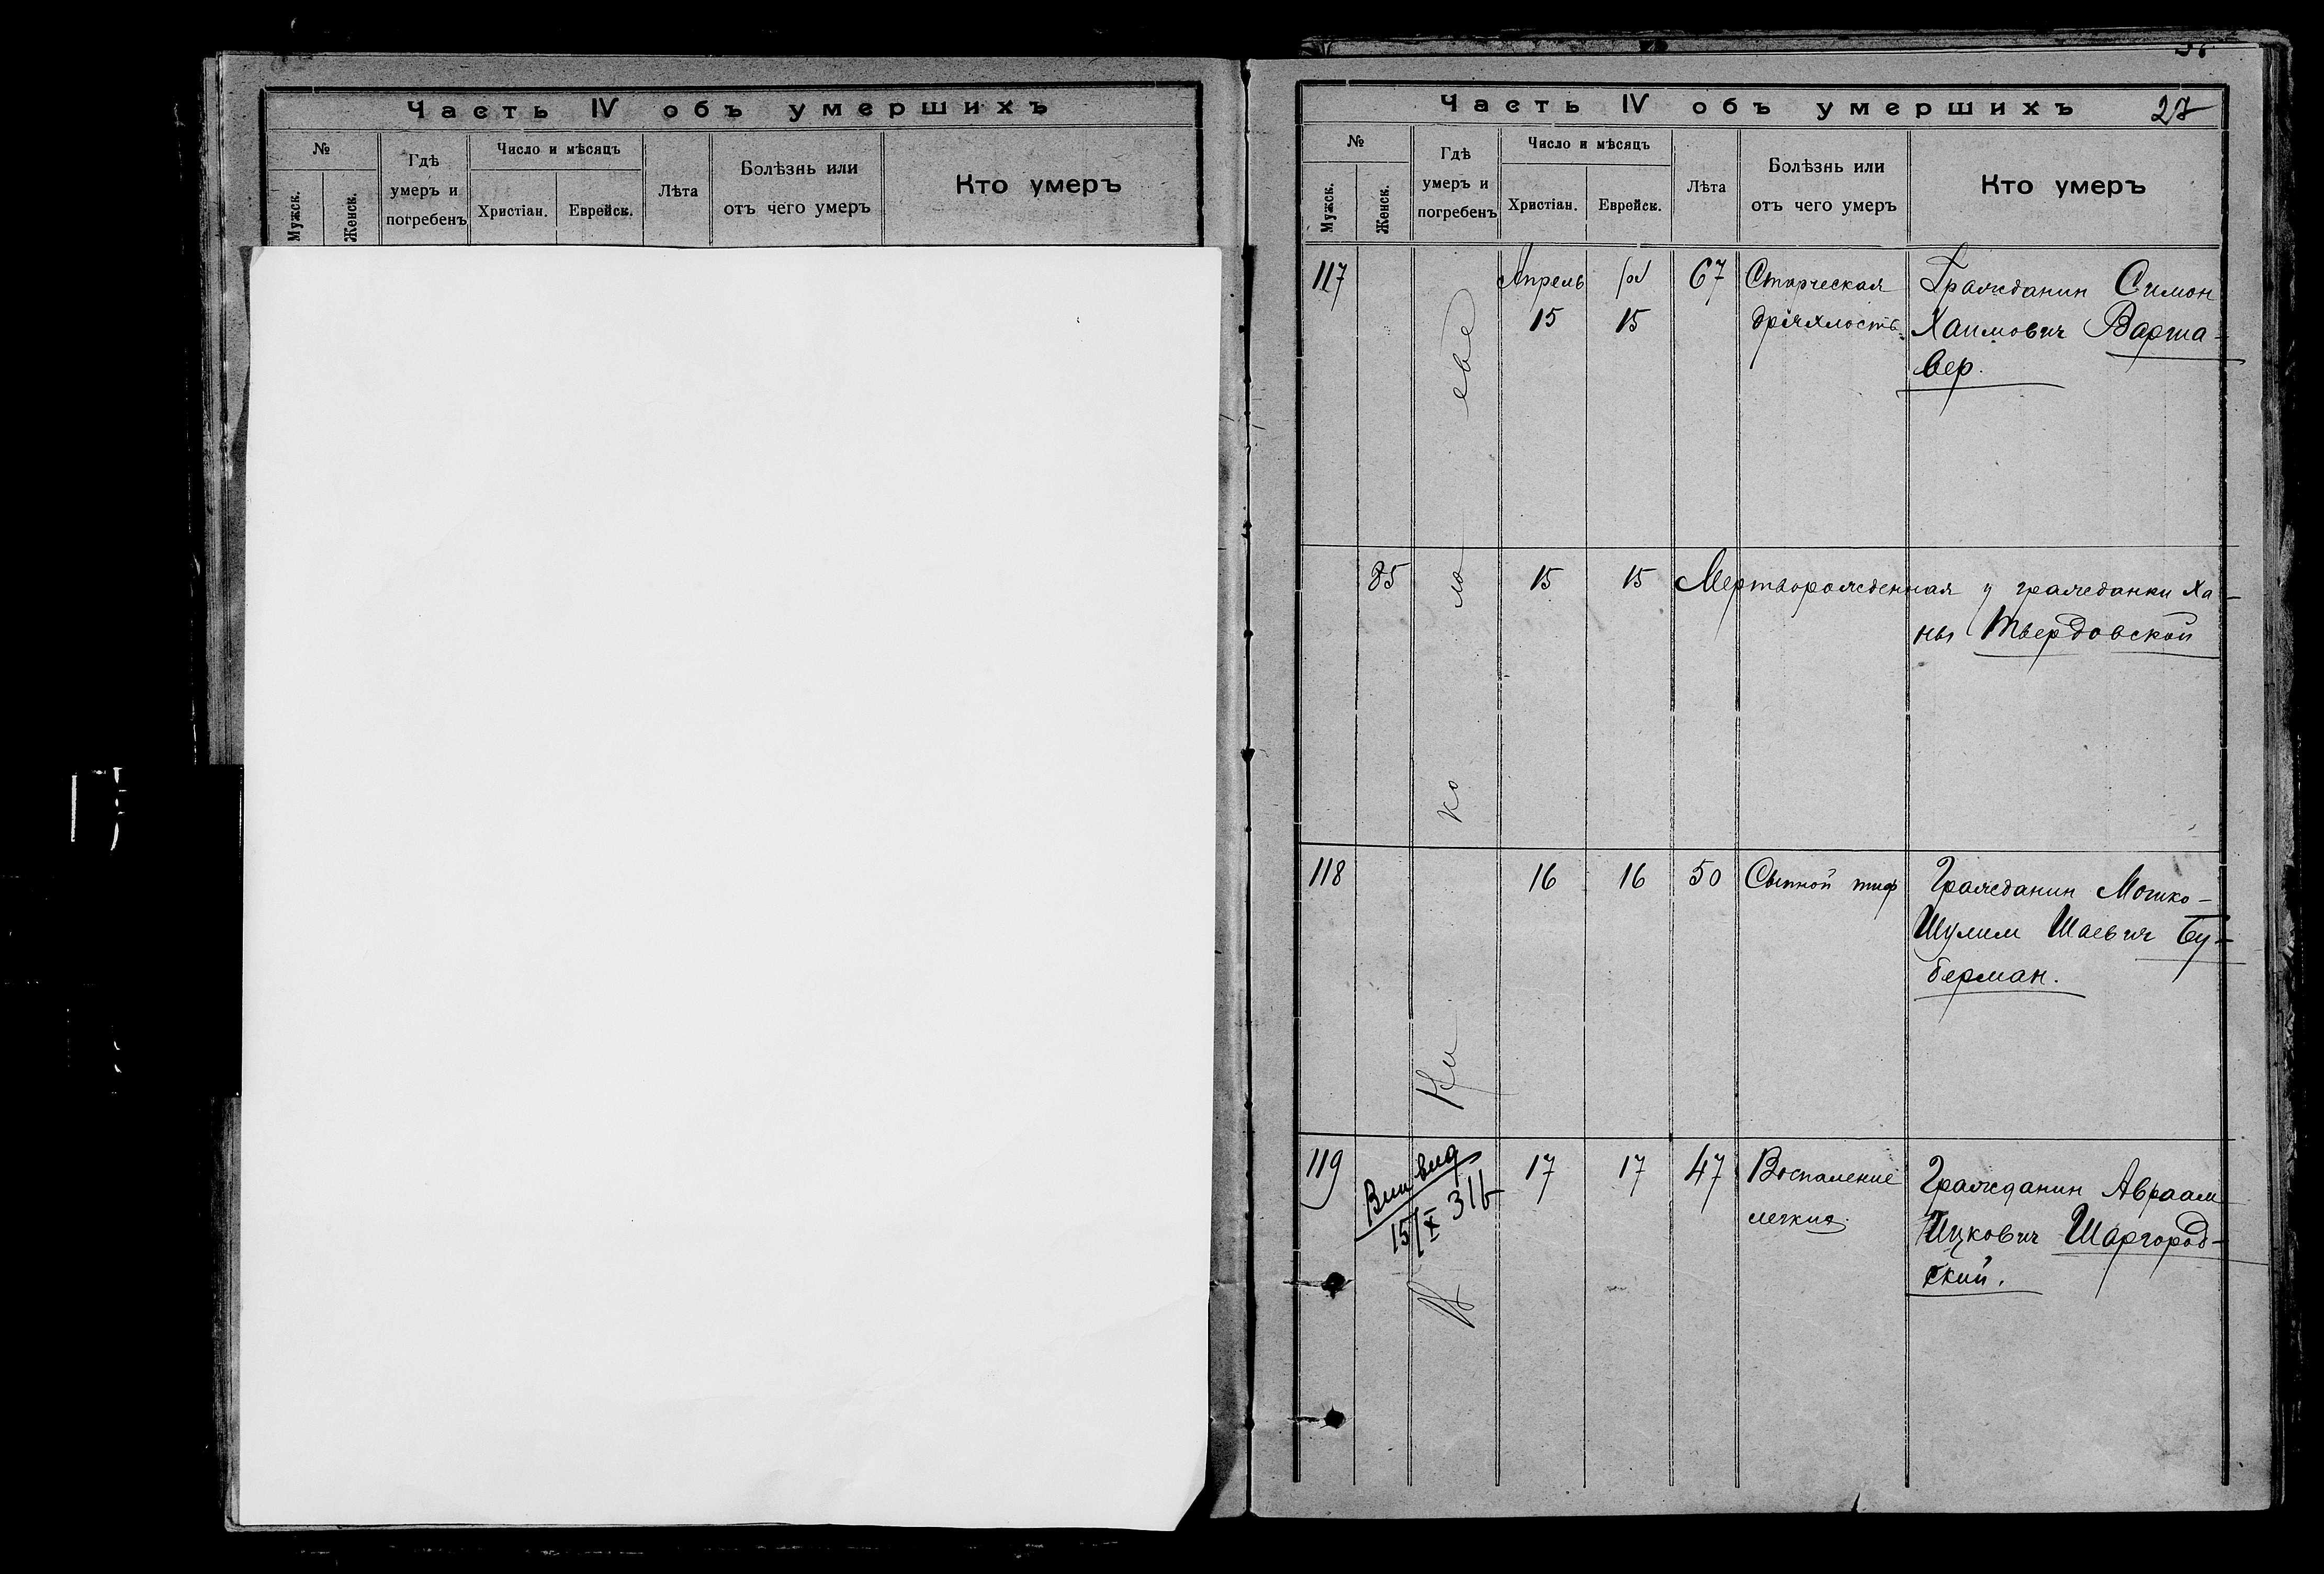 Часть IV объ умершихъ
№
Гдѣ умеръ и погребенъ
Число и мѣсяцъ
Лѣта
Болѣзнь или отъ чего умеръ
Кто умеръ
Мужск.
Женск.
Христіан.
Еврейск.
Часть IV объ умершихъ
27
№
Гдѣ умеръ и погребенъ
Число и мѣсяцъ
Лѣта
Болѣзнь или отъ чего умеръ
Кто умеръ
Мужск.
Женск.
Христіан.
Еврейск.
117 Апрель 67 Старческая Гражданин Симон
15 15 дряхлость. Хаимович Варша-
вер.
85 15 15 Мертворожденная у гражданки Ха-
ны Твердовской
118 16 16 50 Сыпной тиф Гражданин Мошко-
Шулим Шаевич Бу-
берман.
119 17 17 47 Воспаление Гражданин Авраам
легких. Ицкович Шаргород-
ский.
15/X 31